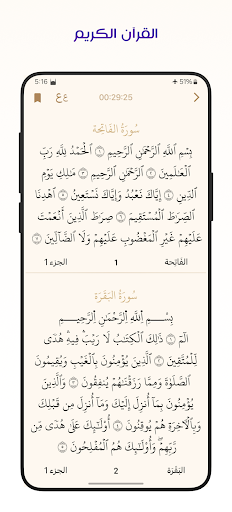 القرآن الكريم
5:16
51%
ع ع
00:29:25
سُورَةُ الفَاتِحَة
بِسْمِ اللَّهِ الرَّحْمَٰنِ الرَّحِيمِ ۝ الْحَمْدُ لِلَّهِ رَبِّ
الْعَالَمِينَ ۝ الرَّحْمَٰنِ الرَّحِيمِ ۝ مَالِكِ يَوْمِ
الدِّينِ ۝ إِيَّاكَ نَعْبُدُ وَإِيَّاكَ نَسْتَعِينُ ۝ اهْدِنَا
الصِّرَاطَ الْمُسْتَقِيمَ ۝ صِرَاطَ الَّذِينَ أَنْعَمْتَ
عَلَيْهِمْ غَيْرِ الْمَغْضُوبِ عَلَيْهِمْ وَلَا الضَّالِّينَ ۝
الفَاتِحة 1 الجزء 1
سُورَةُ البَقَرَة
بِسْمِ اللَّهِ الرَّحْمَٰنِ الرَّحِيمِ
الم ۝ ذَٰلِكَ الْكِتَابُ لَا رَيْبَ ۛ فِيهِ ۛ هُدًى
لِّلْمُتَّقِينَ ۝ الَّذِينَ يُؤْمِنُونَ بِالْغَيْبِ وَيُقِيمُونَ
الصَّلَوٰةَ وَمِمَّا رَزَقْنَاهُمْ يُنفِقُونَ ۝ وَالَّذِينَ
يُؤْمِنُونَ بِمَا أُنزِلَ إِلَيْكَ وَمَا أُنزِلَ مِن قَبْلِكَ
وَبِالْآخِرَةِ هُمْ يُوقِنُونَ ۝ أُولَٰئِكَ عَلَىٰ هُدًى مِّن
رَّبِّهِمْ ۖ وَأُولَٰئِكَ هُمُ الْمُفْلِحُونَ ۝
البَقَرَة 2 الجزء 1